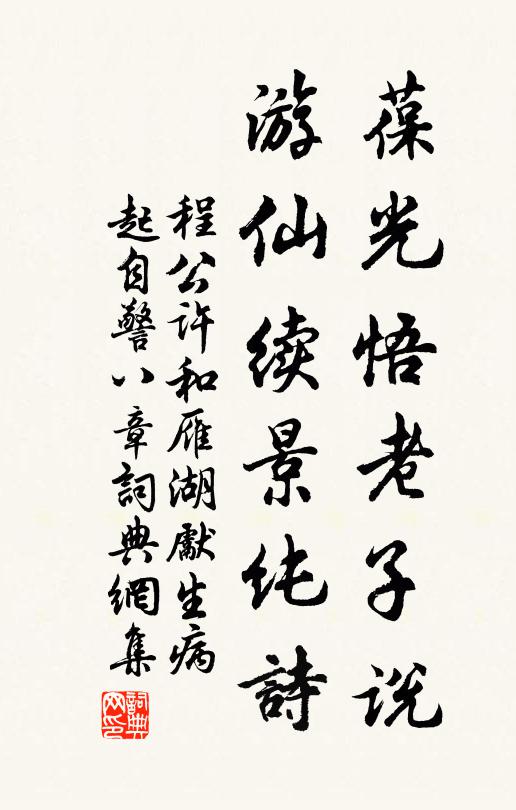 葆光悟老子说
游仙续景纯詩
程公许和雁湖獻生病
起自警八章詞典網集
詞典网印